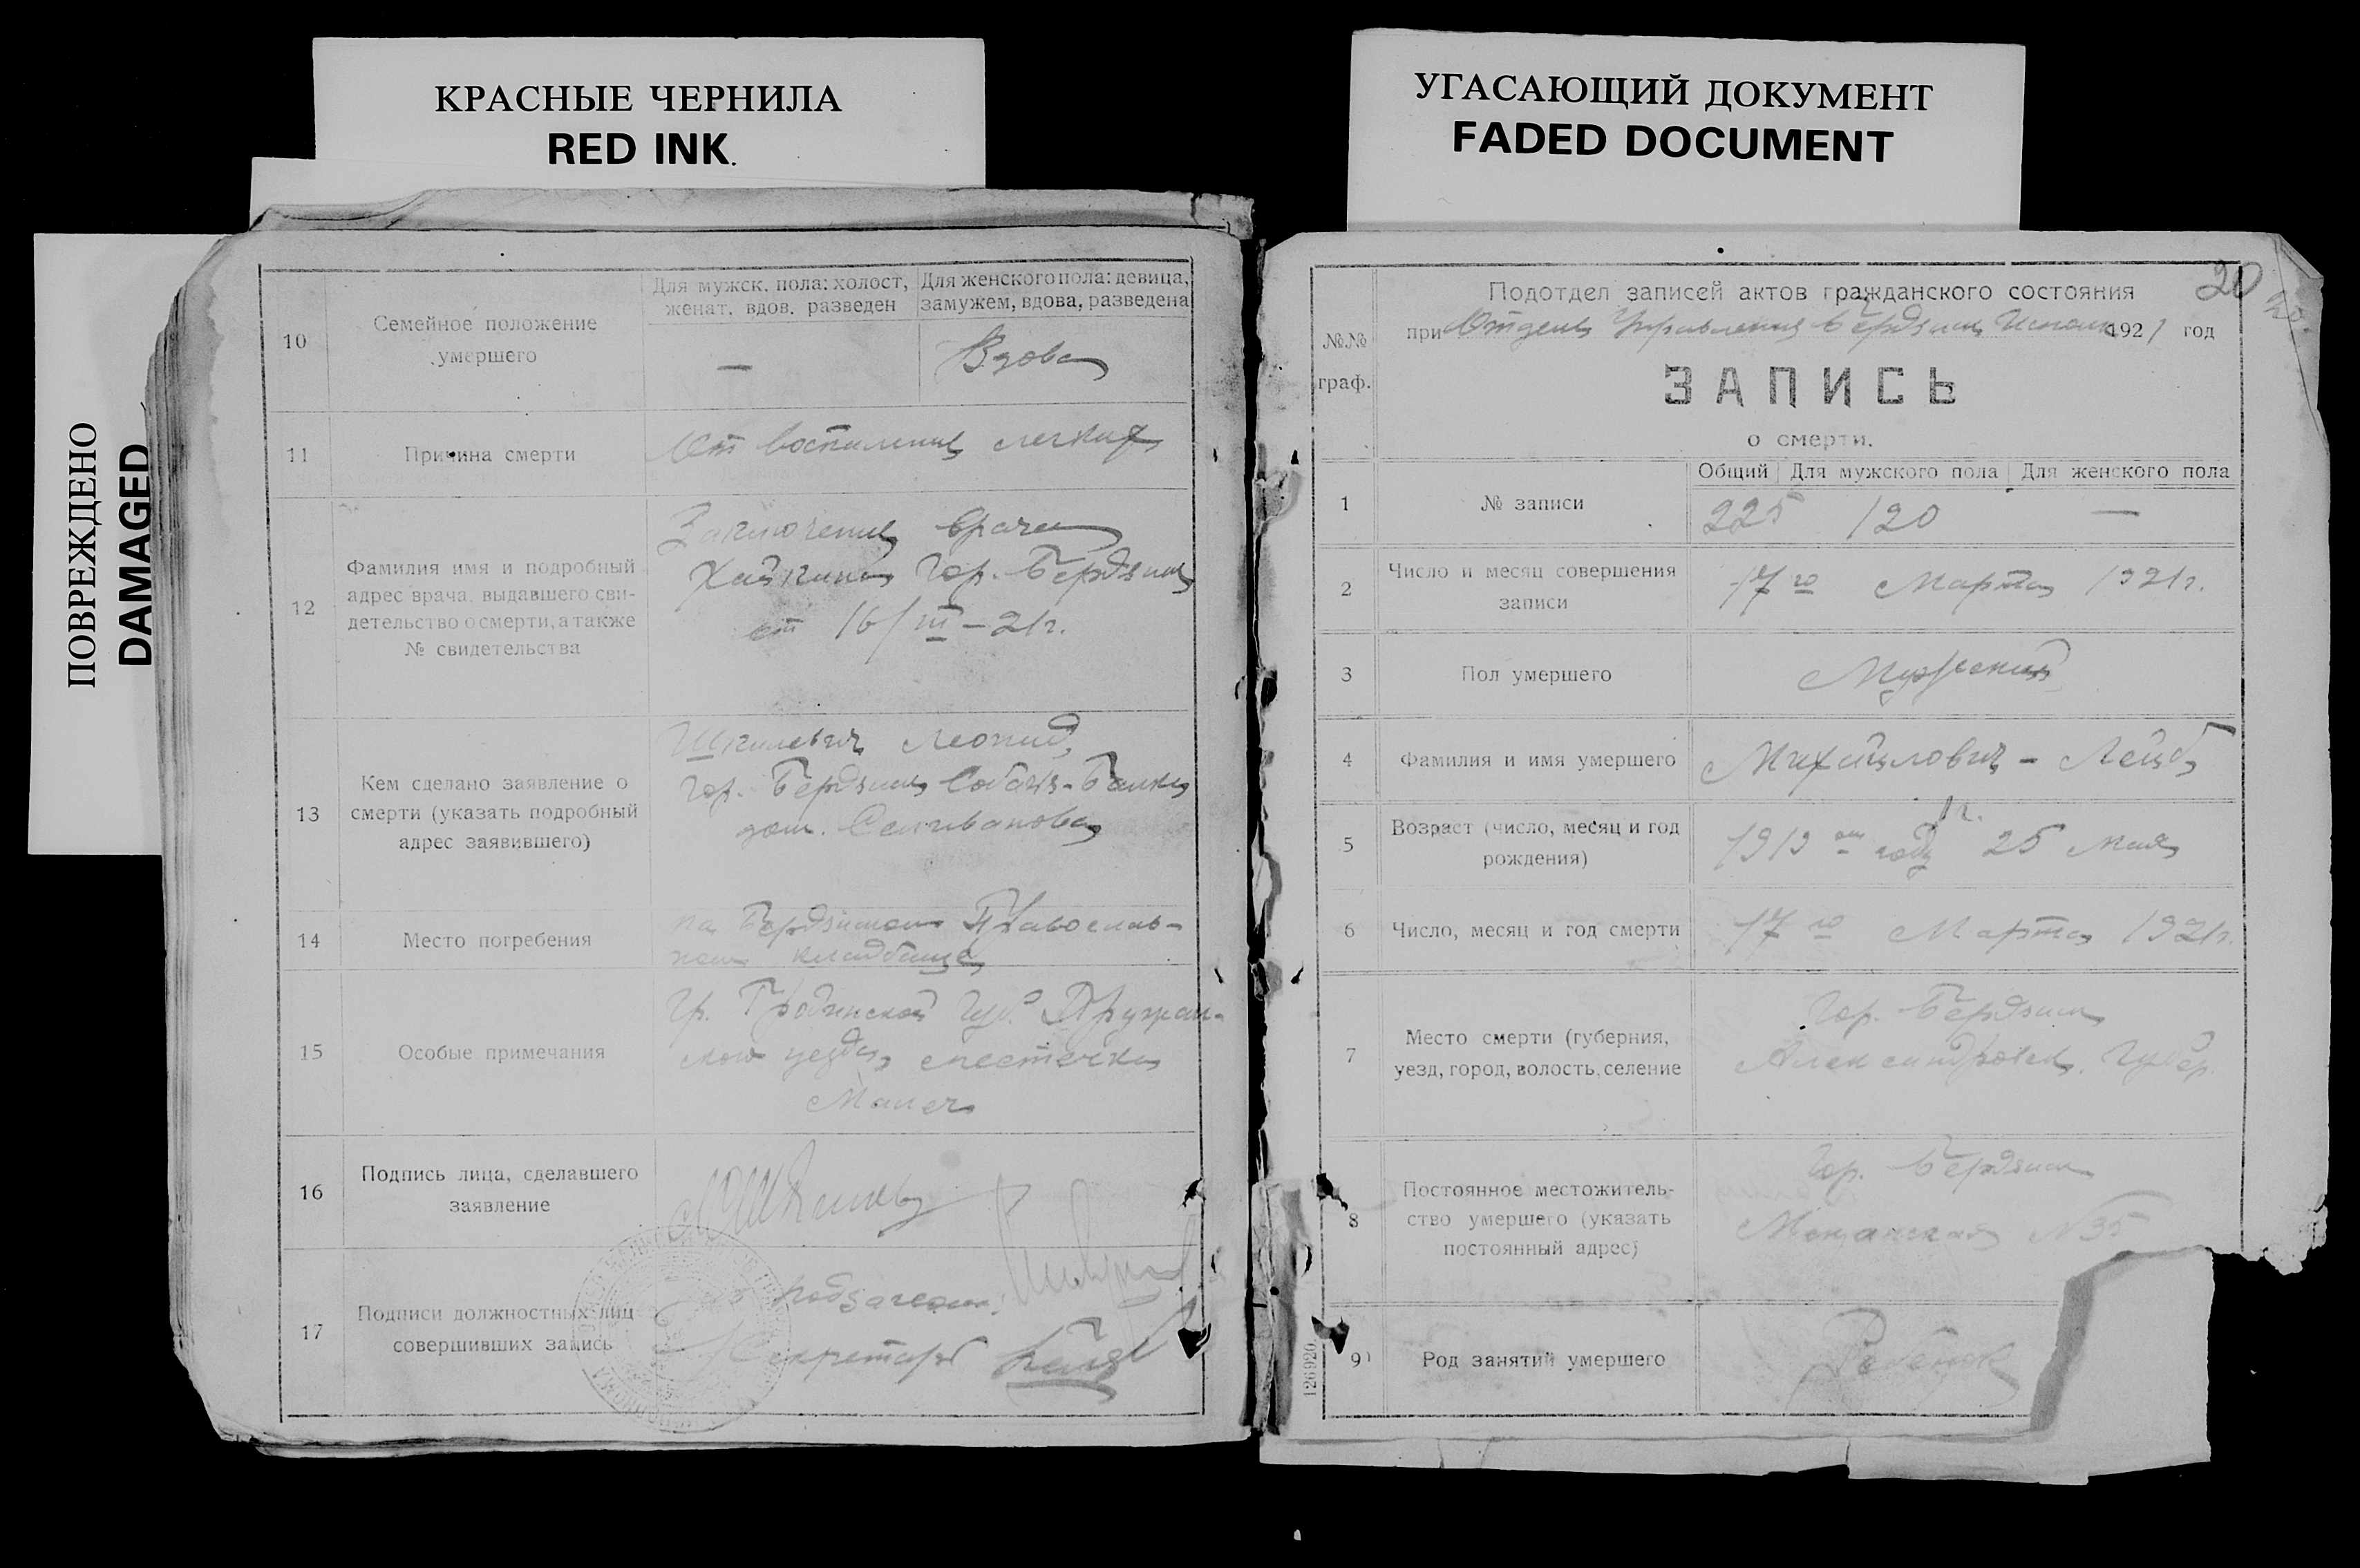 КРАСНЫЕ ЧЕРНИЛА
RED INK.
УГАСАЮЩИЙ ДОКУМЕНТ
FADED DOCUMENT
ПОВРЕЖДЕНО
DAMAGED
10
Семейное положение
умершего
Для мужск. пола: холост,
женат, вдов, разведен
Для женского пола: девица,
замужем, вдова, разведена
—
Вдова
11
Причина смерти
От воспаления легких
12
Фамилия имя и подробный
адрес врача, выдавшего сви-
детельство о смерти, а также
№ свидетельства
Заключение врача
Хайкина Гор. Бердянц
от 16/III–21г.
13
Кем сделано заявление о
смерти (указать подробный
адрес заявившего)
Шкилевич Леонид
Гор. Бердянц
дом. Селиванова
14
Место погребения
на Бердянском Православ-
ном кладбище
15
Особые примечания
Гр. Гродненской губ. Пружан-
ского уезда, местечка
Малеч
16
Подпись лица, сделавшего
заявление
17
Подписи должностных лиц
совершивших запись
Секретарь
20
№№
граф.
Подотдел записей актов гражданского состояния
при Отделе Управления Бердянц Исполк 1921 год
ЗАПИСЬ
о смерти.
1
№ записи
Общий
Для мужского пола
Для женского пола
225
120
—
2
Число и месяц совершения
записи
17го Марта 1921г.
3
Пол умершего
Мужской
4
Фамилия и имя умершего
Михайлович - Лейб
5
Возраст (число, месяц и год
рождения)
1г.
1919 году 25 мая
6
Число, месяц и год смерти
17го Марта 1921г.
7
Место смерти (губерния,
уезд, город, волость, селение
Гор. Бердянц
Александровск. Губер.
8
Постоянное местожитель-
ство умершего (указать
постоянный адрес)
Гор. Бердянц
№35
9
Род занятий умершего
Ребенок
126920